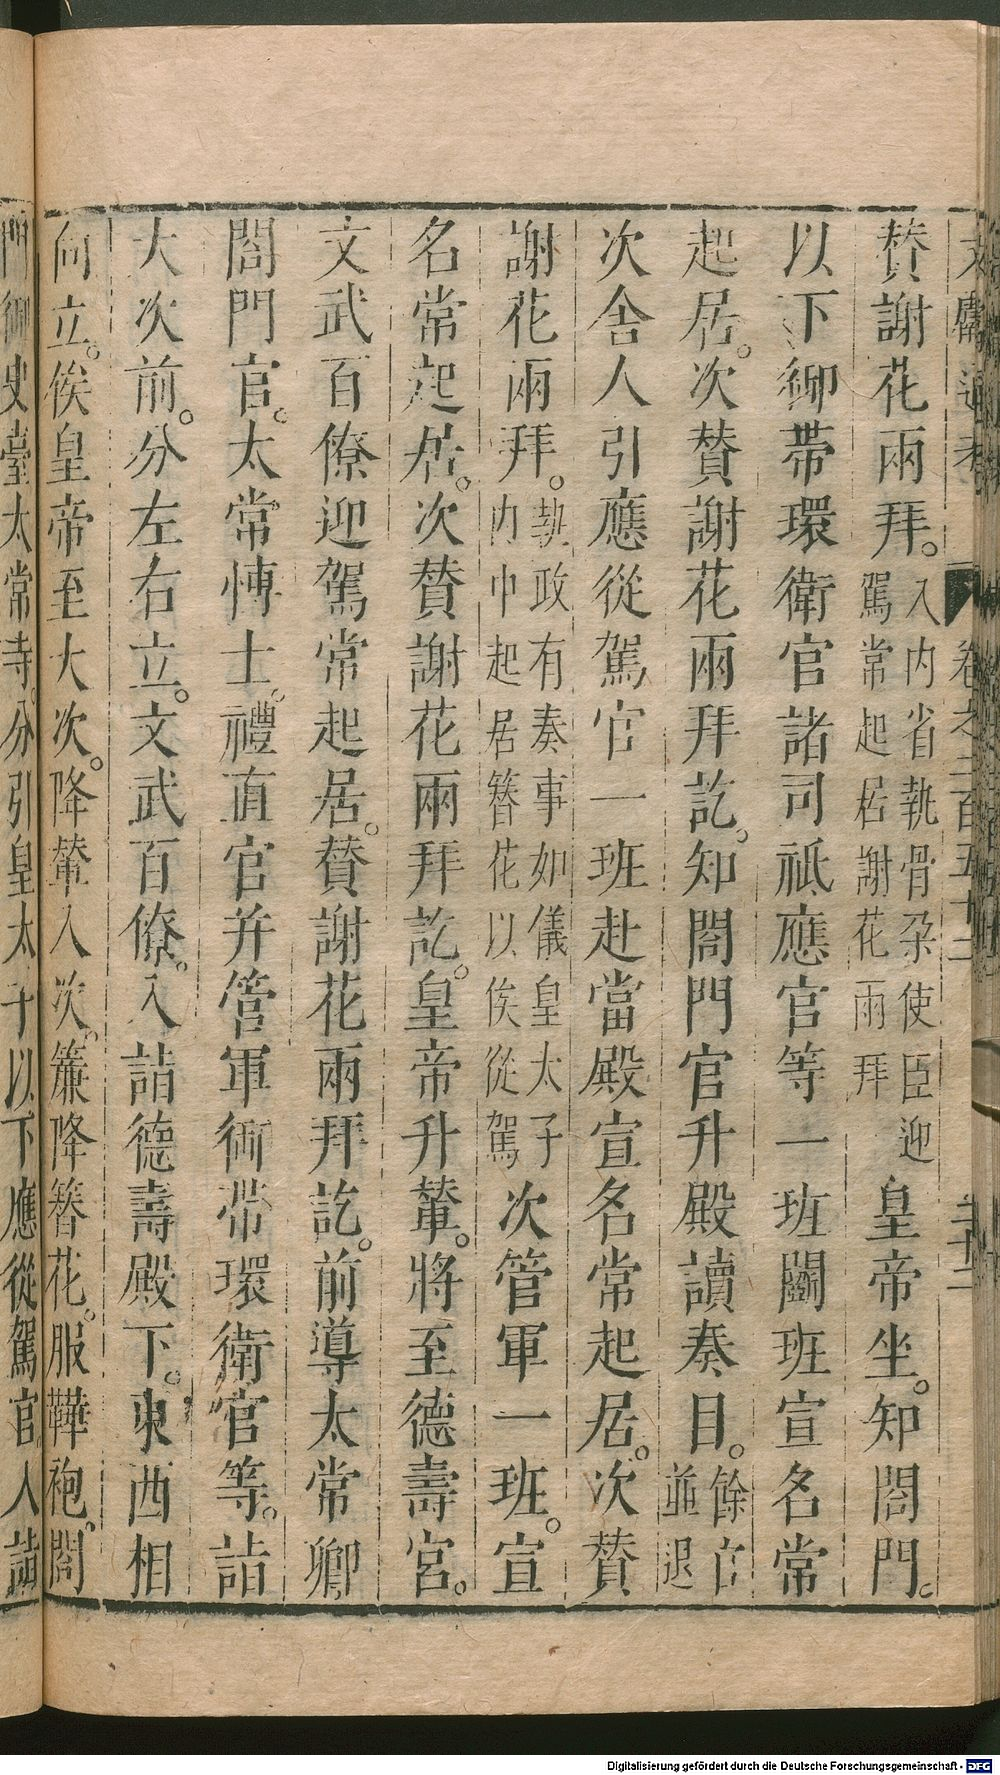 文獻通考 卷之二百五十二 二十二
贊謝花兩拜。入内省執骨朶使臣迎駕常起居謝花兩拜皇帝坐。知閤門。
以下御帶環衛官諸司祗應官等一班鬭班宣名常
起居。次贊謝花兩拜訖。知閤門官升殿讀奏目。餘官並退
次舍人引應從駕官一班赴當殿宣名常起居。次贊
謝花兩拜。執政有奏事如儀皇太子内中起居簪花以俟從駕次管軍一班。宣
名常起居。次贊謝花兩拜訖。皇帝升輦。將至德壽宮。
文武百僚迎駕常起居。贊謝花兩拜訖。前導太常卿
閤門官。太常博士。禮直官并管軍御帶環衛官等。詣
大次前。分左右立。文武百僚。入詣德壽殿下。東西相
向立。俟皇帝至大次。降輦入次。簾降簪花。服鞾袍。閤
門御史臺太常寺。分引皇太子以下應從駕官人詣
Digitalisierung gefördert durch die Deutsche Forschungsgemeinschaft - DFG